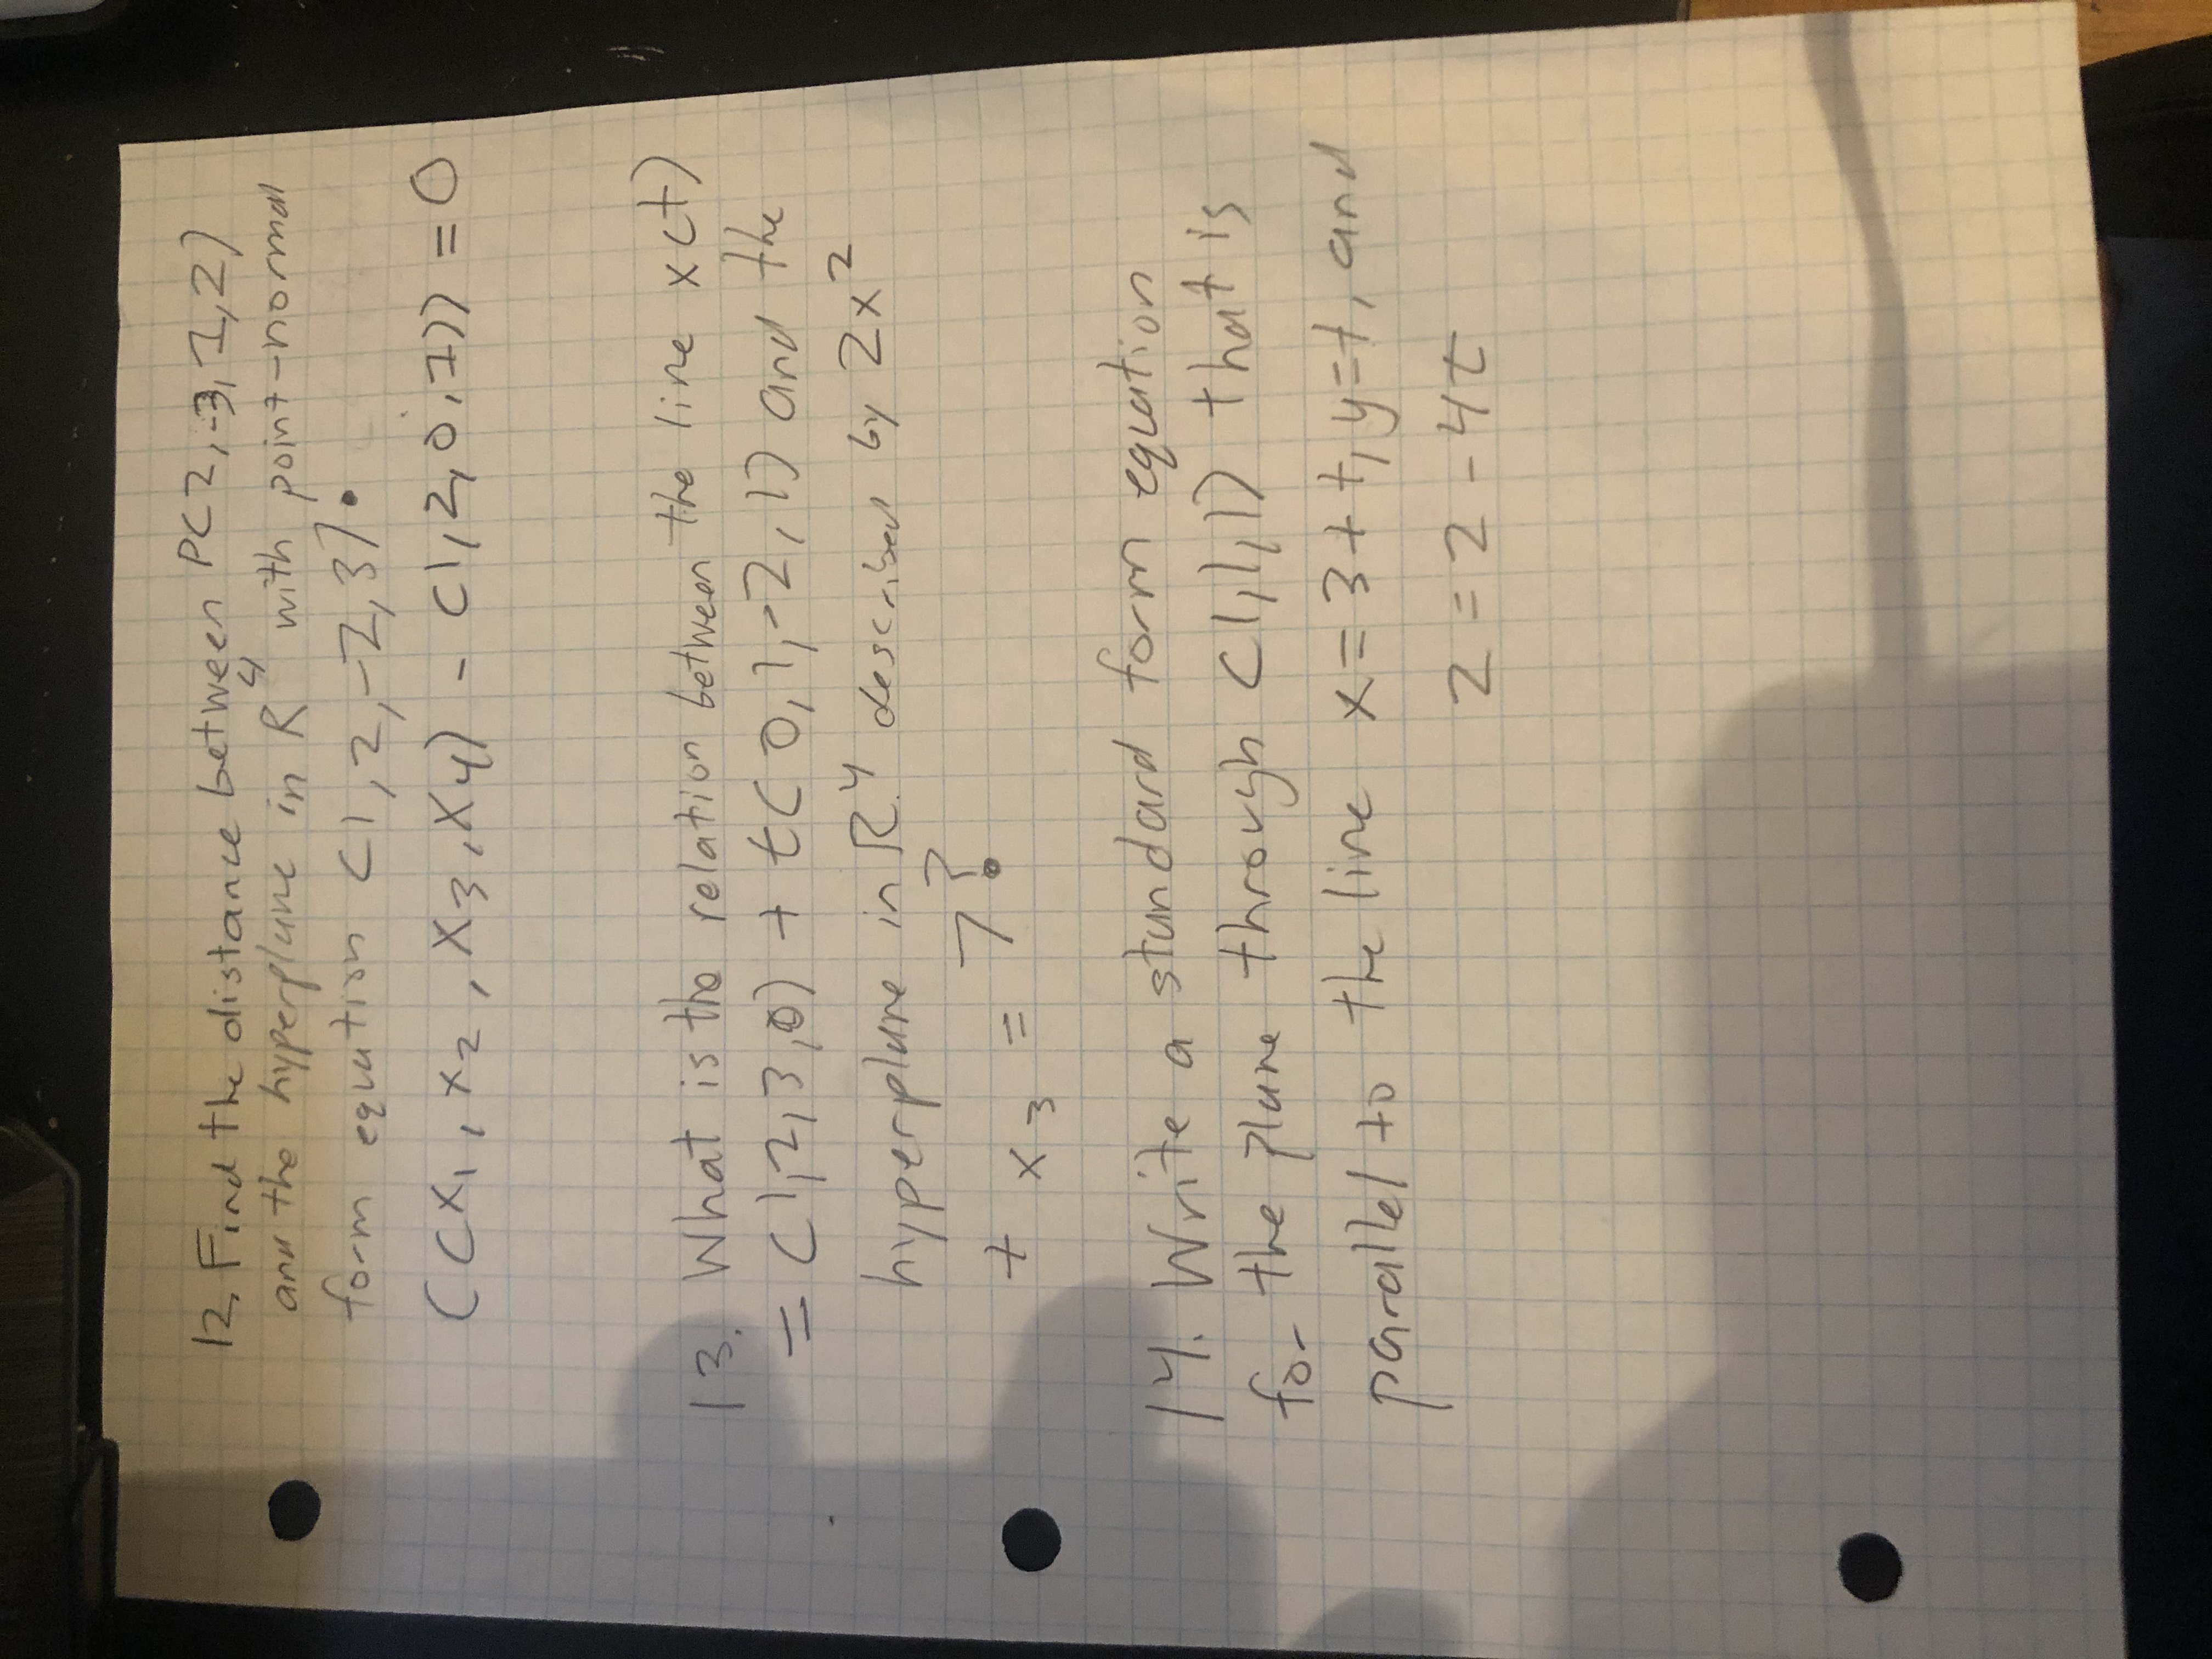 12. Find the distance between P(2,-3,1,2)
and the hyperplane in R⁴ with point-normal
form equation (1,2,-2,3).
((x₁,x₂,x₃,x₄) - (1,2,0,1)) = 0
13. What is the relation between the line x(t)
= (1,2,3,0) + t(0,1,-2,1) and the
hyperplane in R⁴ described by 2x²
+ x₃ = 7?
14. Write a standard form equation
for the plane through (1,1,1) that is
parallel to the line x=3+t, y=t, and
z=2-4t